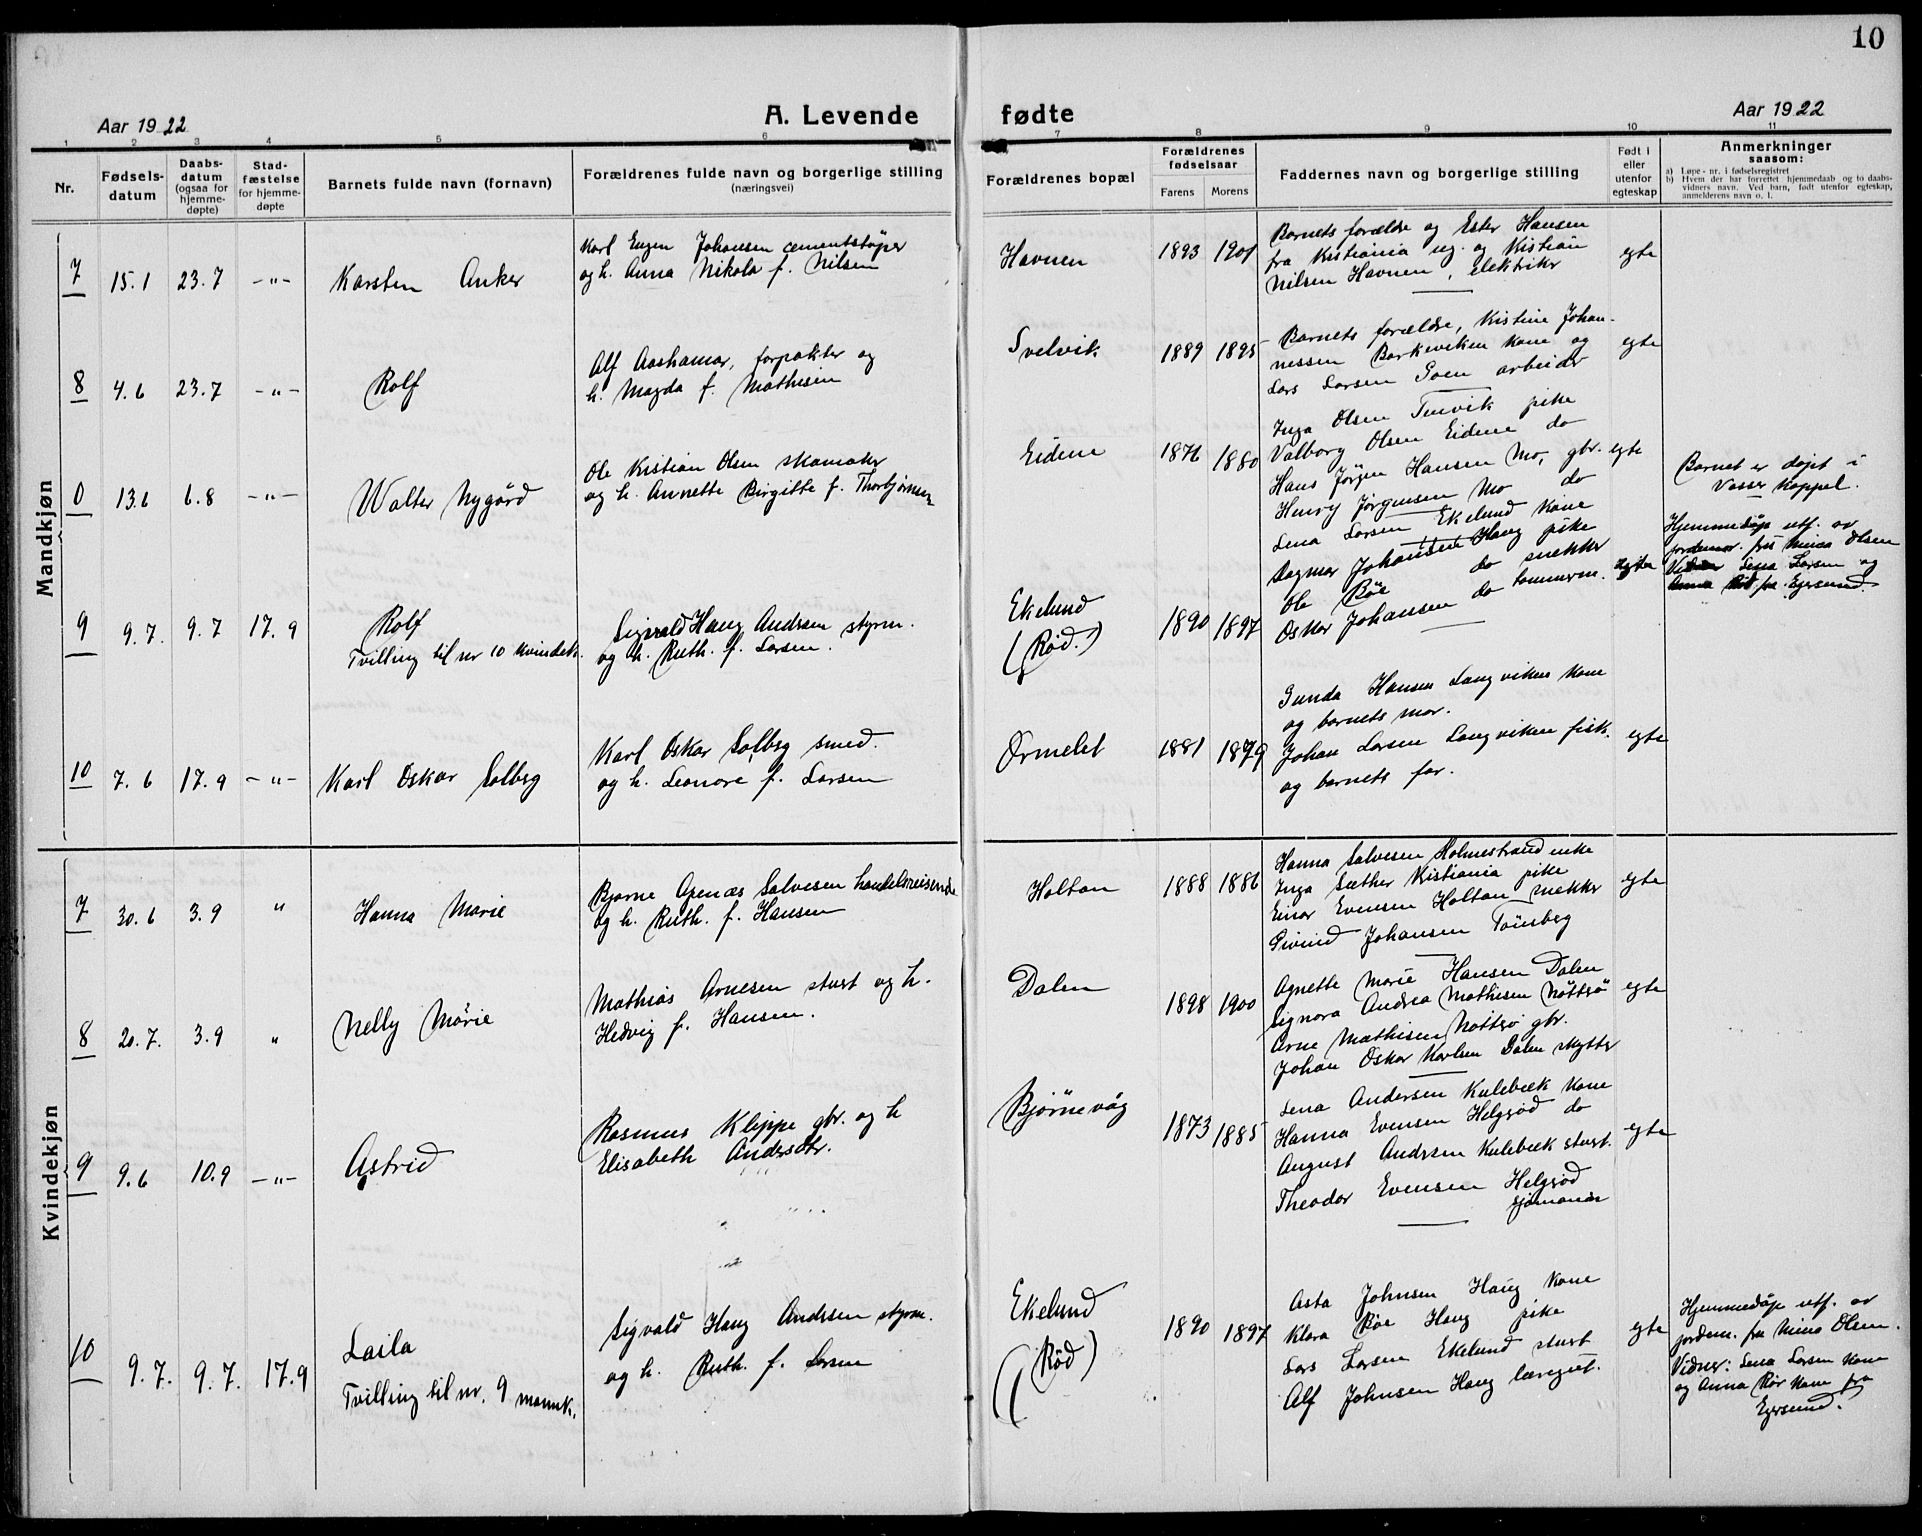 10
Aar 1922
A. Levende fødte
Aar 1922
1 2 3 4 5 6 7 8 9 10 11
Nr.
Fødsels-
datum
Daabs-
datum
(ogsaa for
hjemme-
døpte)
Stad-
fæstelse
for hjemme-
døpte
Barnets fulde navn (fornavn)
Forældrenes fulde navn og borgerlige stilling
(næringsvei)
Forældrenes bopæl
Forældrenes
fødselsaar
Farens Morens
Faddernes navn og borgerlige stilling
Født i
eller
utenfor
egteskap
Anmerkninger
saasom:
a) Løpe-nr. i fødselsregistret
b) Hvem der har forrettet hjemmedaab og to daabs-
vidners navn. Ved barn, født utenfor egteskap,
anmelderens navn o. l.
Mandkjøn
7 15.1 23.7 -"- Karsten Anker
Karl Eugen Johansen cementstøper
og h. Anna Nikola f. Nilsen
Havnen 1893 1901
Barnets forældre og Ester Hansen
fra Kristiania ug. og Kristian
Nilsen Havnen, elektriker
egte
8 4.6 23.7 -"- Rolf
Alf Aashamar, forpakter og
h. Magda f. Mathisen
Svelvik 1889 1895
Barnets forældre, Kistine Johan-
nessen Barkeviken kone og
Lars Larsen Goen arbeider
egte
0 13.6 6.8 -"- Walter Nygård
Ole Kristian Olsen skomaker
og h. Annette Birgitte f. Thorbjørnsen
Eidene 1876 1880
Inga Olsen Tenvik pike
Valborg Olsen Eidene do
Hans Jørgen Hansen Mo, gbr.
Henry Jørgensen Mo do
egte
Barnet er døpt i
Vasser kappel.
9 9.7. 9.7 17.9 Rolf
Tvilling til nr 10 kvindek.
Sigvald Haug Andrsen styrm.
og h. Ruth. f. Larsen.
Ekelund
(Rød.)
1890 1897
Lena Larsen Ekelund Kone
Dagmar Johansen Haug pike
Ole Røe do snekker
Oskar Johansen do tømmerm.
egte
Hjemmedåp utf. av
jordemor. fru Mina Olsen
Vidner Lena Larsen og
Anna Rö fra Egersund.
10 7.6 17.9 -"- Karl Oskar Solberg
Karl Oskar Solberg smed.
og h. Leonore f. Larsen
Ormelet 1881 1879
Gunda Hansen Langviken kone
og barnets mor.
Johan Larsen Langviken fisk.
og barnets far.
egte
Kvindekjøn
7 30.6 3.9 " Hanna Marie
Bjarne Agenæs Salvesen handelsreisende
og h. Ruth. f. Hansen
Holtan 1888 1886
Hanna Salvesen Holmestrand enke
Inga Sæther Kristiania pike
Einar Evensen Holtan snekker
Eivind Johansen Tönsberg
egte
8 20.7. 3.9 " Nelly Marie
Mathias Arnesen stuert og h.
Hedvig f. Hansen.
Dalen 1898 1900
Agnette Marie Hansen Dalen
Signora Andrea Mathisen Nöttrö
Arne Mathisen Nöttrö gbr.
Johan Oskar Karlsen Dalen skytter
egte
9 9.6 10.9 -"- Astrid
Rasmus Kleppe gbr. og h
Elisabeth Andersdtr.
Bjørnevåg 1873 1885
Lena Andersen Kulebæk Kone
Hanna Evensen Helgeröd do
August Andrsen Kulebæk stuert.
Theodor Evensen Helgeröd
sjömann
egte
10 9.7. 9.7. 17.9 Laila
Tvilling til nr. 9 mannk.
Sigvald Haug Andrsen styrm.
og h. Ruth. f. Larsen
Ekelund
(Rød)
1890 1897
Asta Johnsen Haug Kone
Klara Røe Haug pike
Lars Larsen Ekelund stuert
Alf Johnsen Haug læregut.
egte
Hjemmedåp utf. av
jordem. fru Mina Olsen.
Vidner: Lena Larsen kone
og Anna Rør kone fra
Egersund.